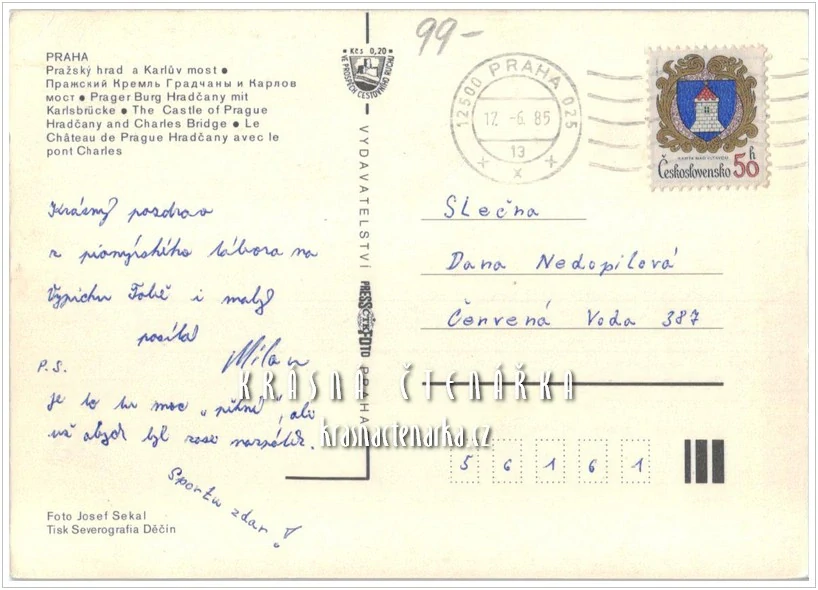 99-
PRAHA
Pražský hrad a Karlův most ●
Пражский Кремль Градчаны и Карлов
мост ● Prager Burg Hradčany mit
Karlsbrücke ● The Castle of Prague
Hradčany and Charles Bridge ● Le
Château de Prague Hradčany avec le
pont Charles
Kčs 0,20
VE PROSPĚCH CESTOVNÍHO RUCHU
12500 PRAHA 025
12. -6. 85
13
x
Československo 50 h
Krásný pozdrav
z pionýrského tábora na
Vypichu Tobě i malý
posílá
Milan
P.S.
Je to tu moc „pěkné", ale
už abych byl zase nazpátek.
Sportu zdar!
VYDAVATELSTVÍ PRESSFOTO PRAHA
ČTK
Slečna
Dana Nedopilová
Červená Voda 387
56161
KRÁSNÁ ČTENÁŘKA
krasnactenarka.cz
Foto Josef Sekal
Tisk Severografia Děčín